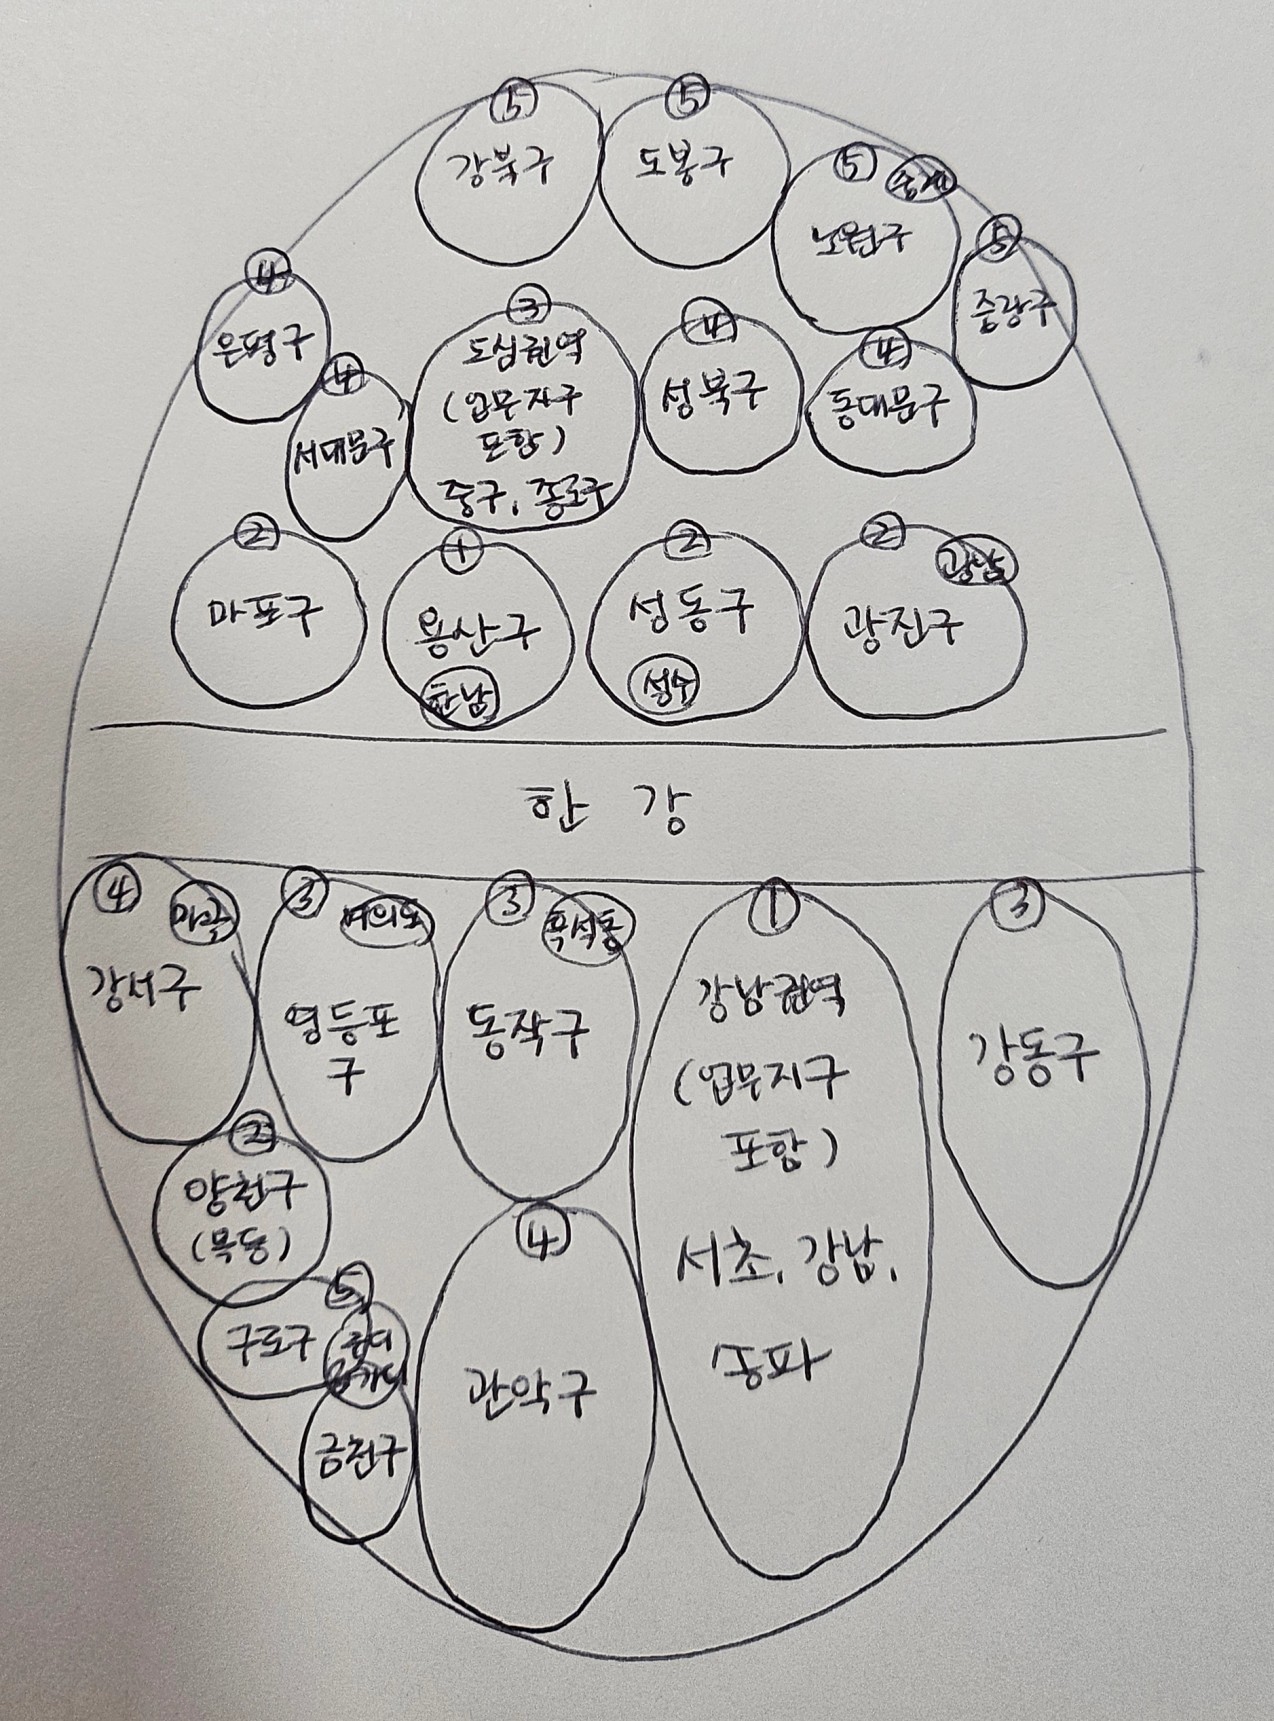 ⑤
강북구
⑤
도봉구
⑤ 중계
노원구
⑤
중랑구
④
은평구
④
서대문구
③
도심권역
(업무지구
포함)
중구, 종로구
④
성북구
④
동대문구
②
마포구
①
용산구
한남
②
성동구
성수
②
광남
광진구
한 강
④ 마곡
강서구
③ 여의도
영등포
구
③ 흑석동
동작구
①
강남권역
(업무지구
포함)
서초, 강남,
송파
③
강동구
②
양천구
(목동)
⑤
구로구
구디
가디
금천구
④
관악구